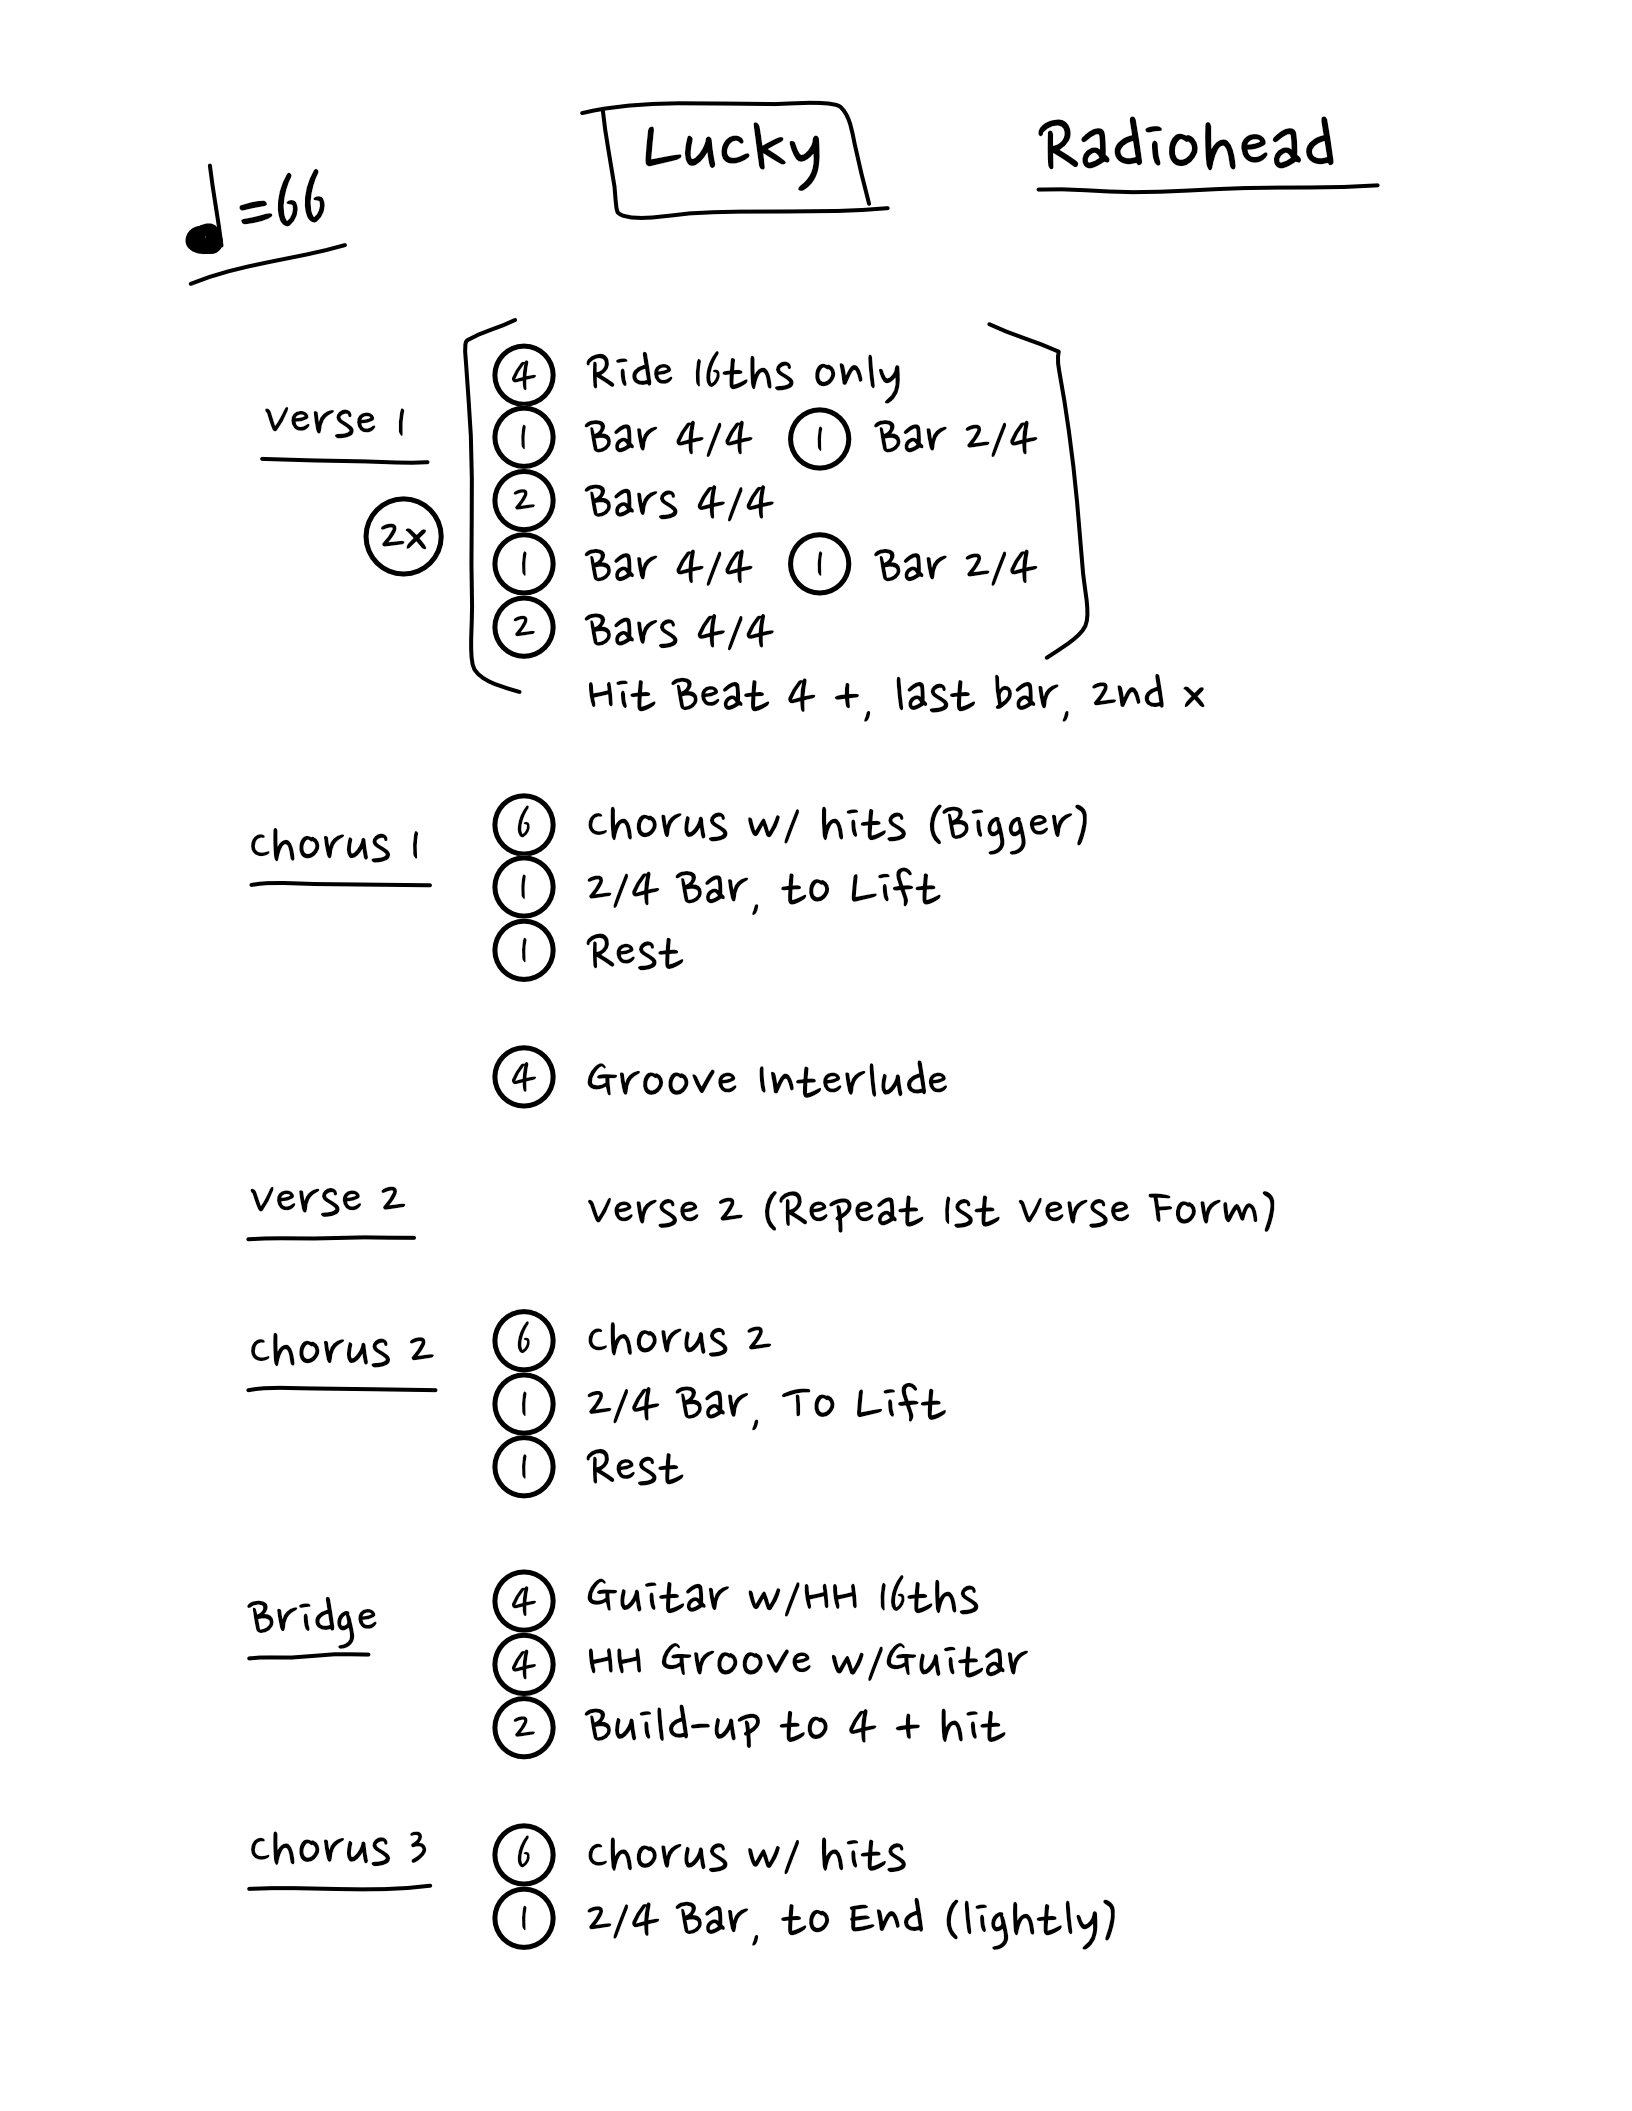 Lucky Radiohead
♩=66
Verse 1
2x
4 Ride 16ths only
1 Bar 4/4 1 Bar 2/4
2 Bars 4/4
1 Bar 4/4 1 Bar 2/4
2 Bars 4/4
Hit Beat 4 +, last bar, 2nd x
Chorus 1
6 Chorus w/ hits (Bigger)
1 2/4 Bar, to Lift
1 Rest
4 Groove Interlude
Verse 2 Verse 2 (Repeat 1st Verse Form)
Chorus 2
6 Chorus 2
1 2/4 Bar, To Lift
1 Rest
Bridge
4 Guitar w/HH 16ths
4 HH Groove w/Guitar
2 Build-up to 4 + hit
Chorus 3
6 Chorus w/ hits
1 2/4 Bar, to End (lightly)